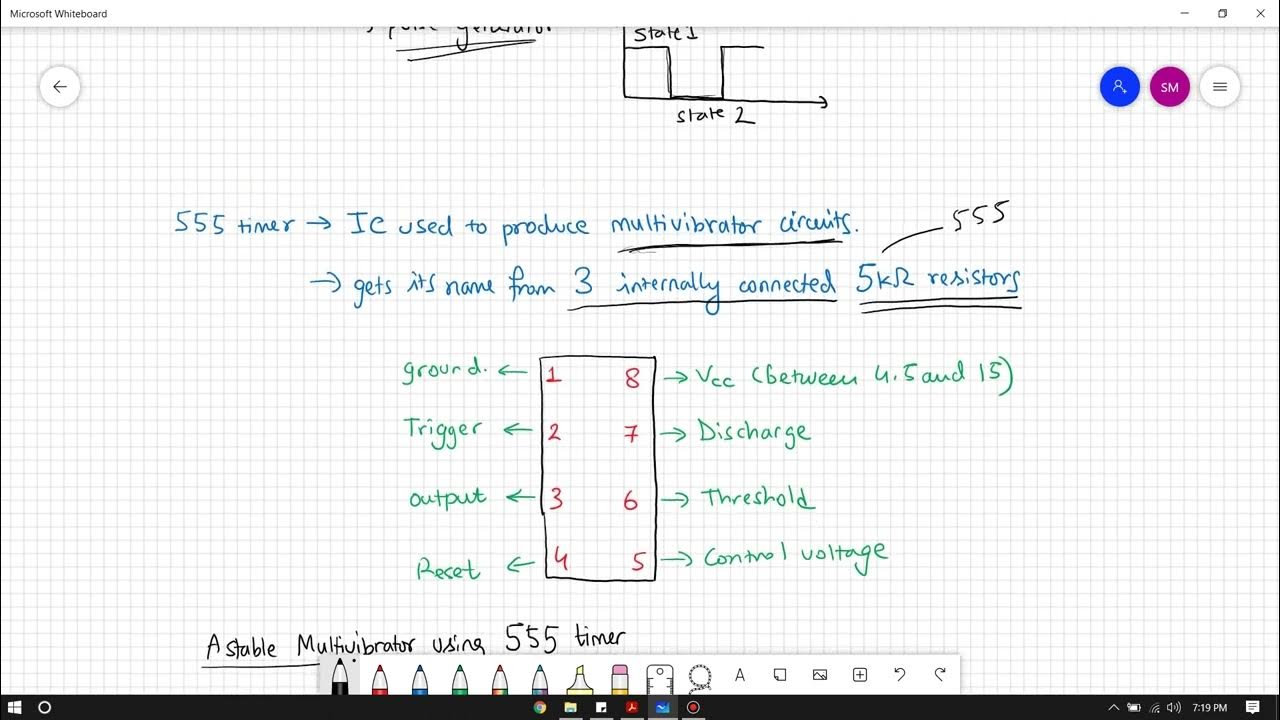 Microsoft Whiteboard
pulse generator
state 1
state 2
SM
555 timer → IC used to produce multivibrator circuits.
555
→ gets its name from 3 internally connected 5kΩ resistors
ground. ← 1 8 → Vcc (between 4.5 and 15)
Trigger ← 2 7 → Discharge
output ← 3 6 → Threshold
Reset ← 4 5 → Control voltage
Astable Multivibrator using 555 timer
A
7:19 PM